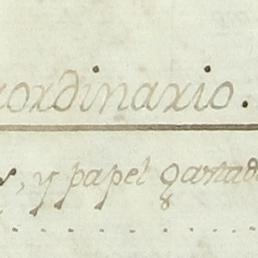 xordinario.
, y papel gastad